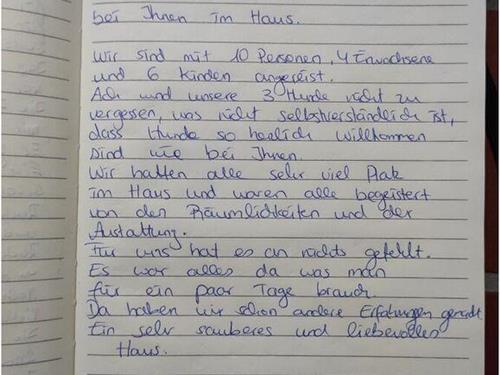 bei Ihnen im Haus.
Wir sind mit 10 Personen, 4 Erwachsene
und 6 Kinden angereist.
Ach und unsere 3 Hunde nicht zu
vergessen, was nicht selbstverständlich ist,
dass Hunde so herzlich Willkommen
sind wie bei Ihnen.
Wir hatten alle sehr viel Platz
im Haus und waren alle begeistert
von den Räumlichkeiten und der
Austattung.
Für uns hat es an nichts gefehlt.
Es war alles da was man
für ein paar Tage brauch.
Da haben wir schon andere Erfahrungen gemacht.
Ein sehr sauberes und liebevolles
Haus.